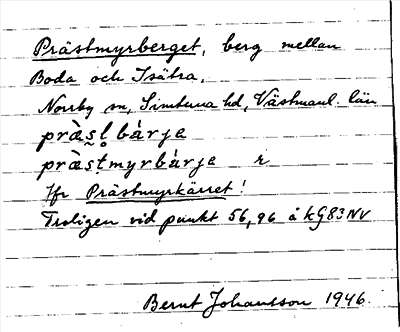 Prästmyrberget, berg mellan
Boda och Isätra,
Norrby sn, Simtuna hd, Västmanl. län
prà̤ṣḷbárje
prà̤ṣṭmyrbárje r
Jfr Prästmyrkärret!
Troligen vid punkt 56,96 å kG83NV
Bernt Johansson 1946.